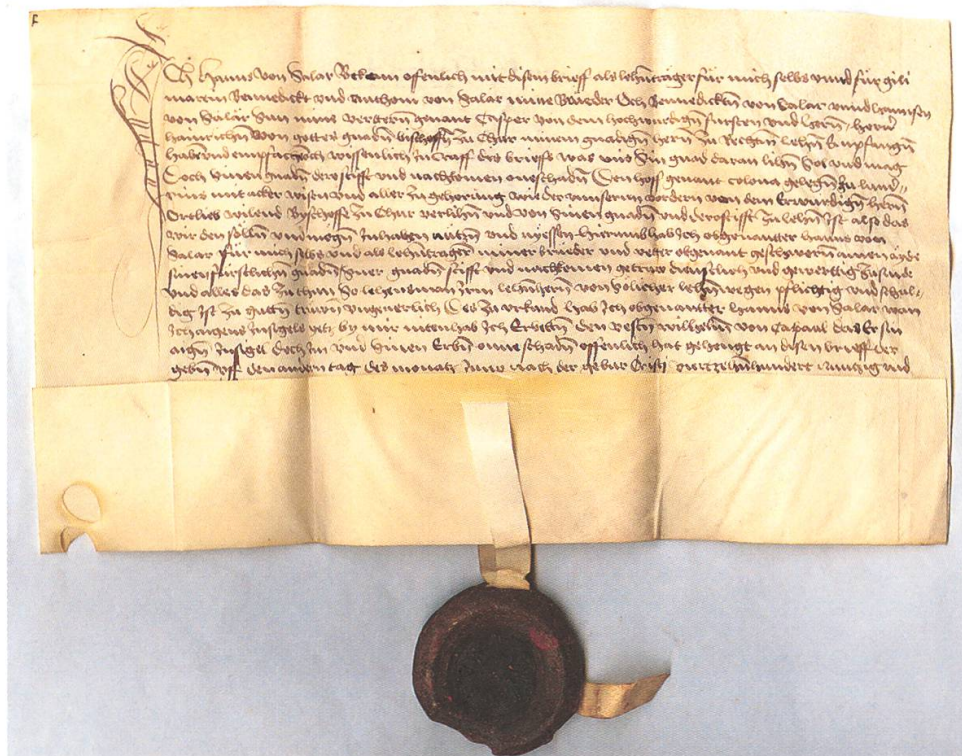 Ich Hanns von Salar Bekenn offenlich mit disem brieff als lehentrager für mich selbs unnd für gili
martin Bennedickt und anthoni von Salar mine Bruder Och Bennedickten von Salar unnd hannsen
von Salar Sun mins vettern genant Casper von dem hochwirdigen fursten und hern hern
hainrichen von gottes gnaden bischoffen zu Chur minem gnadigen hern zu Rechtem lehen Empfangen
haben und empfach och wissenlich In craff des brieffs was uns Sin gnad daran lihen sol und mag
Doch sinen gnaden der stifft und nachkomen onschaden Den hoff genant colona gelegen zu
mit acker wisen und aller zu gehorung wie der unserem vordern von dem Erwurdigen hern
Ortlieb wilend Byschoffe zu Chur verlihen und von Sinen gnaden und der stifft zu lehen Ist also das
wir den sollen und mogen Inhaben nutzen und niessen hierumb hab Ich obgenannter hanns von
Salar für mich selbs und als lehentrager miner bruder und vetter obgenant geschworen ainen ayde
sinen fürstlichen gnaden siner gnaden stifft und nachkomen getruw dienstlich und gewerttig zu sinde
und alles das zu thun So lehensman Irem lehenhern von solicher lehen wegen pflichtig und schul-
dig Ist zu gutten truwen ungeverlich Des zu urkund hab Ich obgenannter hanns von Salar wan
Ich aigens Insigels by mir nit enhab Ich Erbetten den vesten wilhelm von Capaul das Er sin
aigen Insigel doch Im und Sinen Erben one schaden offenlich hat gehengt an disen brieff der
geben uff den andern tag des monatz Juno nach der geburt Cristi viertzehenhundert Nuntzig und